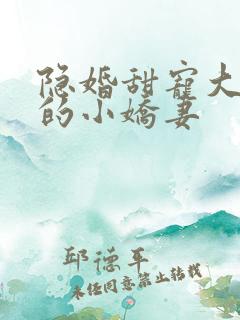 隐婚甜寵大
的小嬌妻
邱德平
未经同意禁止转载